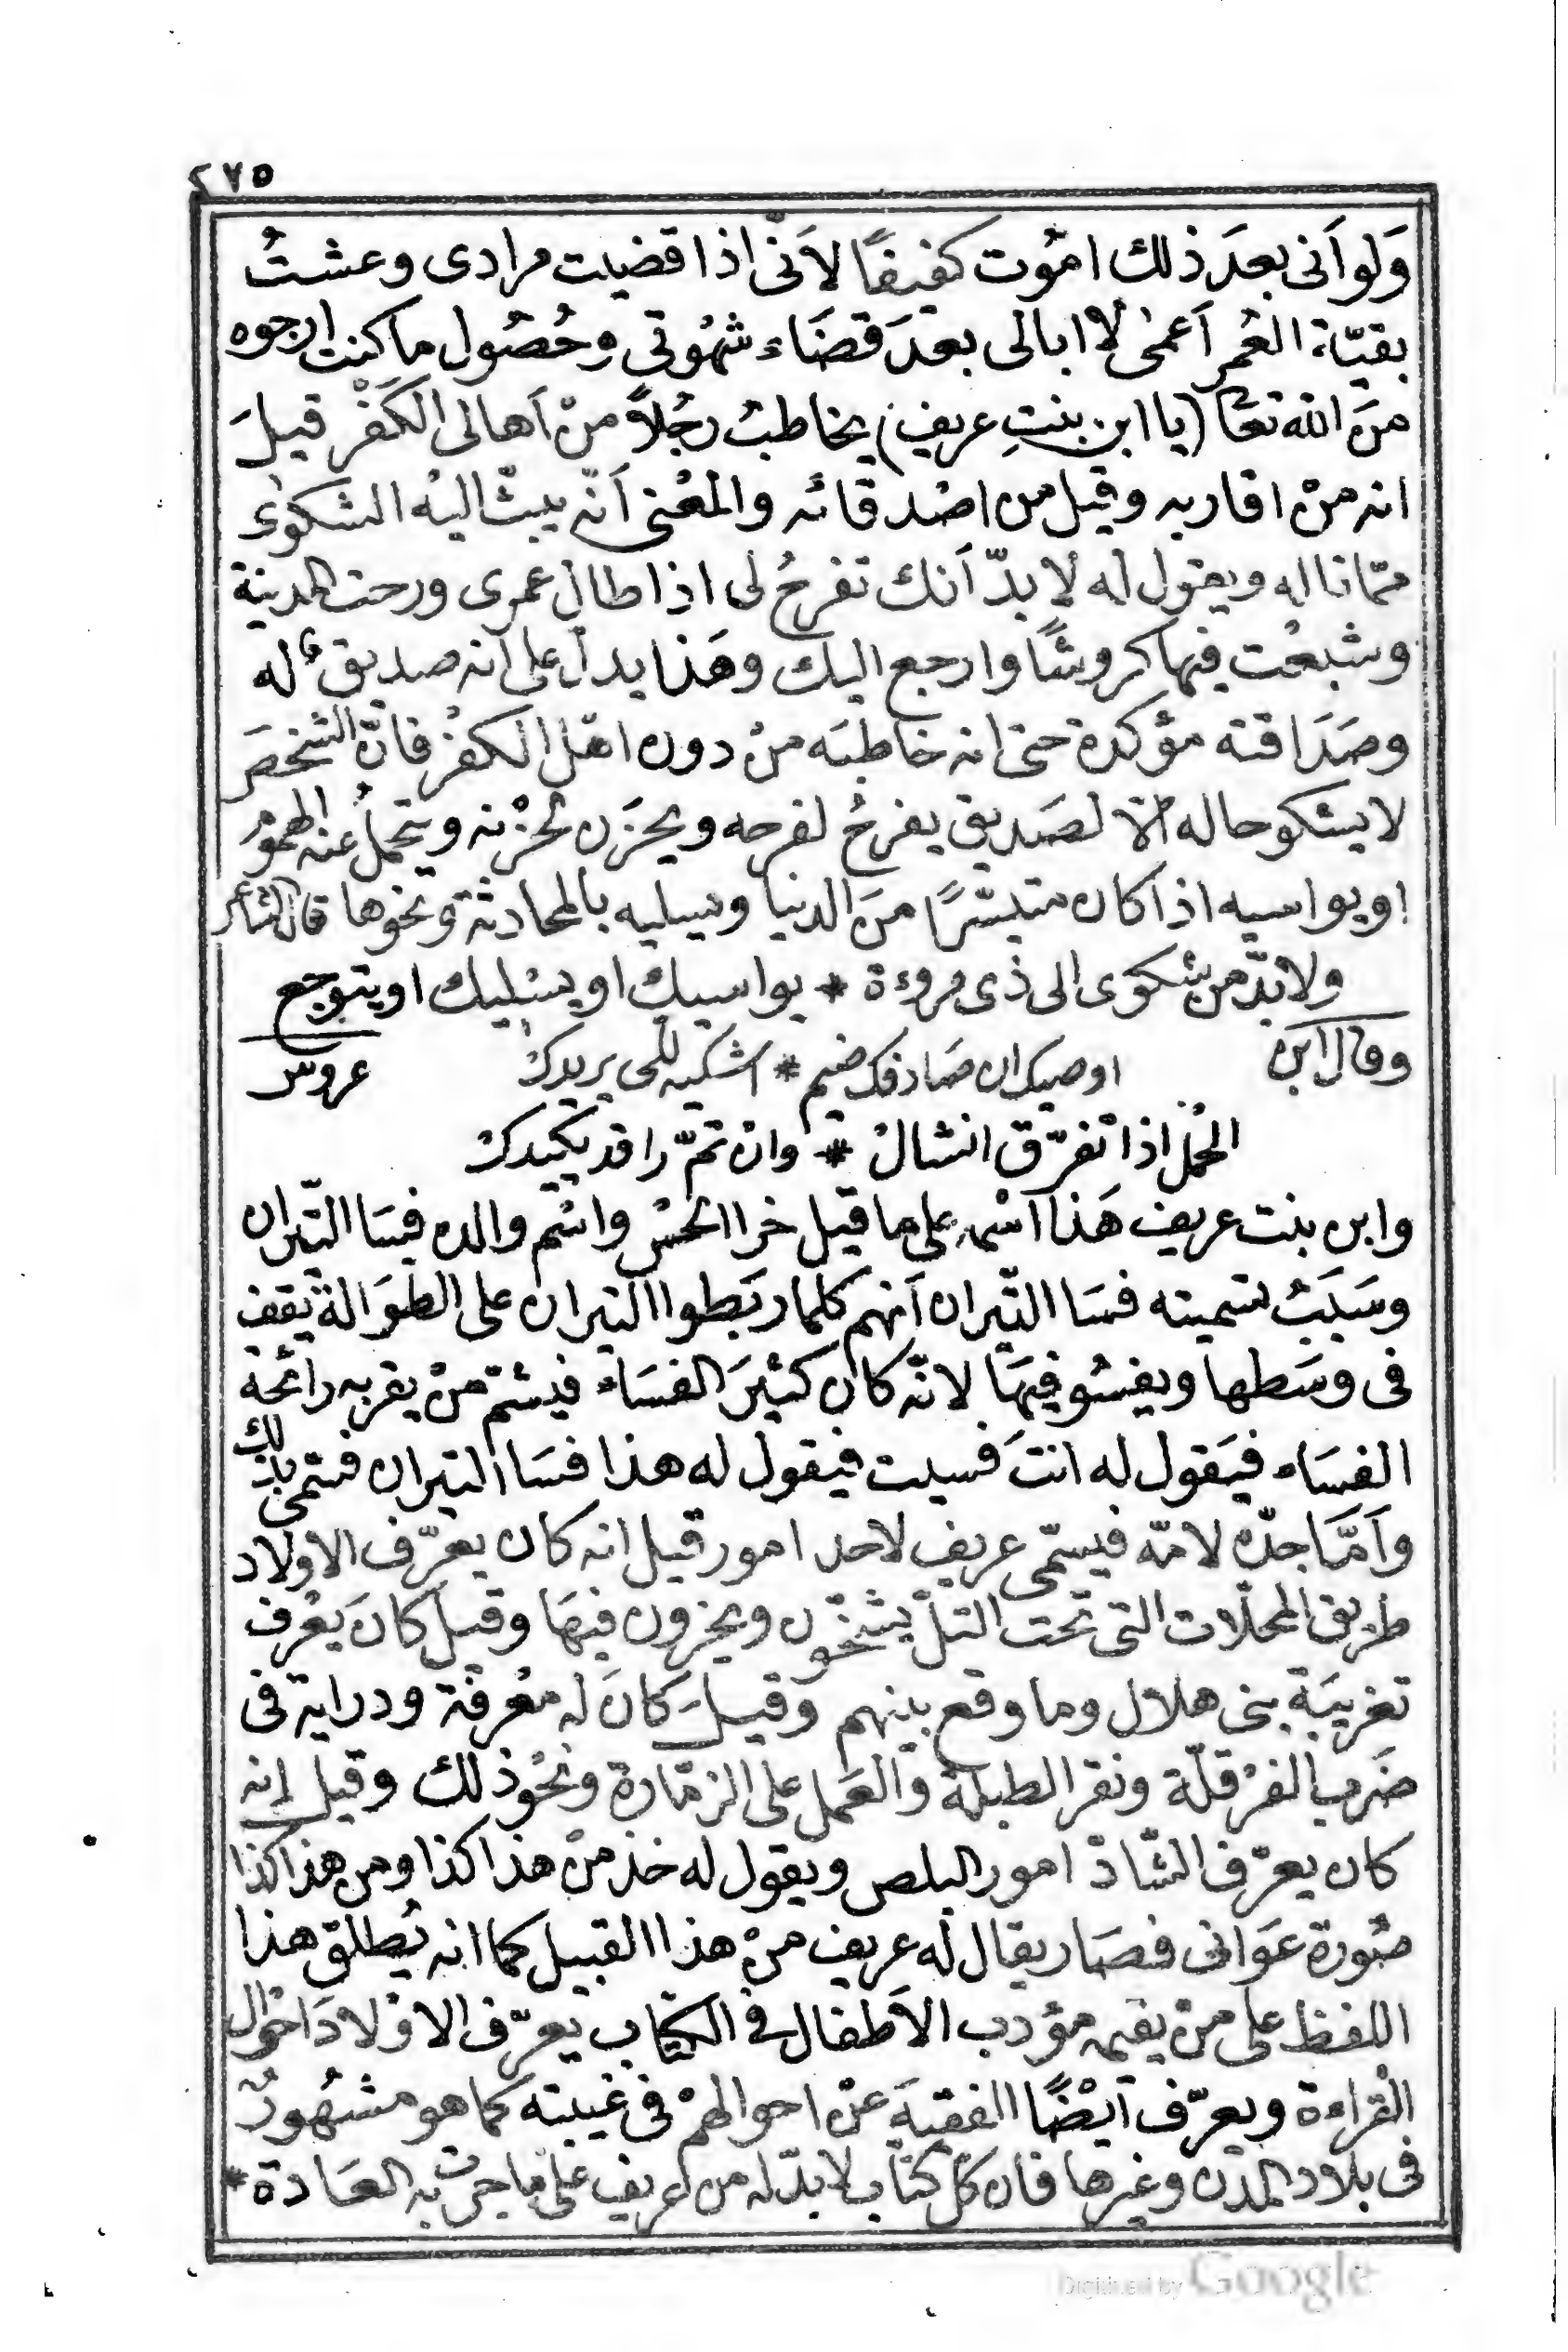 ٢٧٥
وَلو اَنى بعدَ ذلك امُوت كفيفًا لاَنّى اذا قضيت مرادى وعشتُ
بقيّة العُمر اَعمىٰ لا ابالى بعدَ قضَاء شهُوتى وحُصُول ما كنت ارجوه
منَ الله تعا (يا ابن بنتِ عريف) يخاطبُ رجُلاً منْ اَهالى الكفْر قيلَ
انه منْ اقاربه وقيل من اصْدقائه والمعْنى اَنّه يبثّ اليْه الشكوىٰ
ممّا ناله ويقول له لا بدّ اَنك تفرحُ لى اذا طال عمرى ورحت المدينة
وشبعْت فيها كروشًا وارجع اليك وهَذا يدلّ على اَنه صديقٌ له
وصَدَاقته مؤكدة حتى انه خاطبَه منْ دون اهْل الكفْر فانّ الشخصَ
لا يشكو حاله الاّ لصَديق يفرحُ لفرحه ويحزَن لحزْنه ويتحملُ عنه الهمُومْ
او يواسيه اذا كان متيسّرًا منَ الدنيا ويسليه بالمحادثة ونحوها قال الشاعر
ولا بدّ من شكوى الى ذى مروءة * يواسيك او يسْليك او يتوجع
وقال ابن عروس اوصيك ان صَادفك ضيم * اشكيه للّى يريدكْ
الحُمل اذا تفرّق انشالْ * وانْ تمّ راقد يكيدكْ
وابن بنت عريف هَذا اسْمه على ما قيل خرا الحسْ واسْم والده فسَا التيران
وسَبَبُ تسميته فسَا التّيران اَنهم كلما ربَطوا التيران على الطوَالة يقف
فى وسَطها ويفسُو فيهَا لانّه كان كثيْرَ الفسَاء فيشتمّ منْ يقربه رائحة
الفسَاء فيَقول له انتَ فسيت فيقول له هذا فسَا التيران فسمّى بذلك
وَاَمَّا جدّه لامّه فيسمّى عريف لاحد امور قيل انه كان يعرّف الاولاد
طريق المحلّات التى تحت التلّ يشخّون ويخرون فيهَا وقيل كانَ يعْرف
تغريبَة بنى هلال وما وقع بينهم وقيل كانَ له معْرفة ودراية فى
ضَرب الفرْقلّة ونقر الطبلة والعَمل على الزمّارة ونحْو ذلك وقيل إنه
كان يعرّف الشّادّ امور البلص ويقول له خذ منْ هذا كذا ومن هذا كذا
صُورة عَوانى فصَار يقال له عريف منْ هذا القبيل كما انه يُطلق هذا
اللفظ على منْ يقيمه مؤدب الاَطفال فى الكتّاب يعرّف الاوْلادَ احْوال
القْراءة ويعرّف اَيضًا الفقيهَ عنْ احوالهمْ فى غيبته كما هو مشهُورٌ
فى بلاد المدُن وغيرها فان كلّ كتّاب لا بدّ له من عريف على ما جرتْ به العَادة *
Digitized by Google